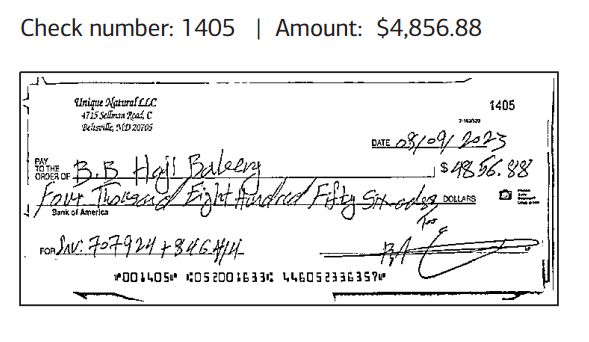 Check number: 1405 | Amount: $4,856.88
Unique Natural LLC
4715 Sellman Road, C
Beltsville, MD 20705
1405
7-163/520
DATE 03/09/2023
PAY TO THE ORDER OF B.B Haji Bakery $4856.88
Four Thousand Eight Hundred Fifty Six DOLLARS
Bank of America
FOR Inv: 707924 + 846414
⑈001405⑈ ⑆052001633⑆ 446052336357⑈